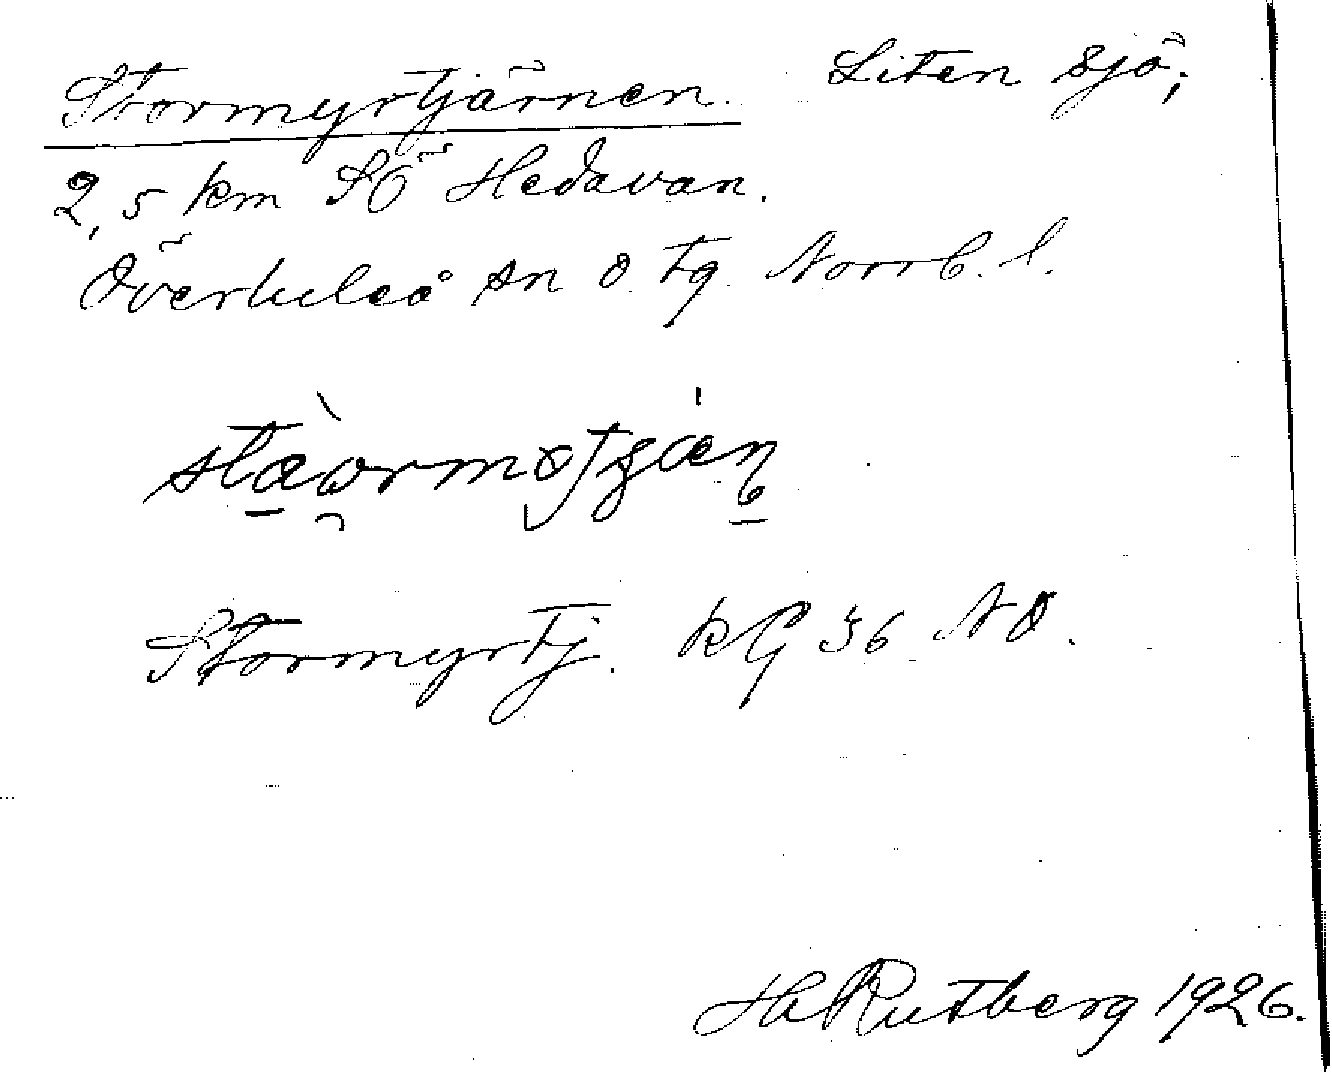 Stormyrtjärnen. Liten sjö,
2,5 km SÖ Hedavan.
Överluleå sn o. tg. Norrb. l.
Stormyrtj. KG 36 NO.
H Rutberg 1926.